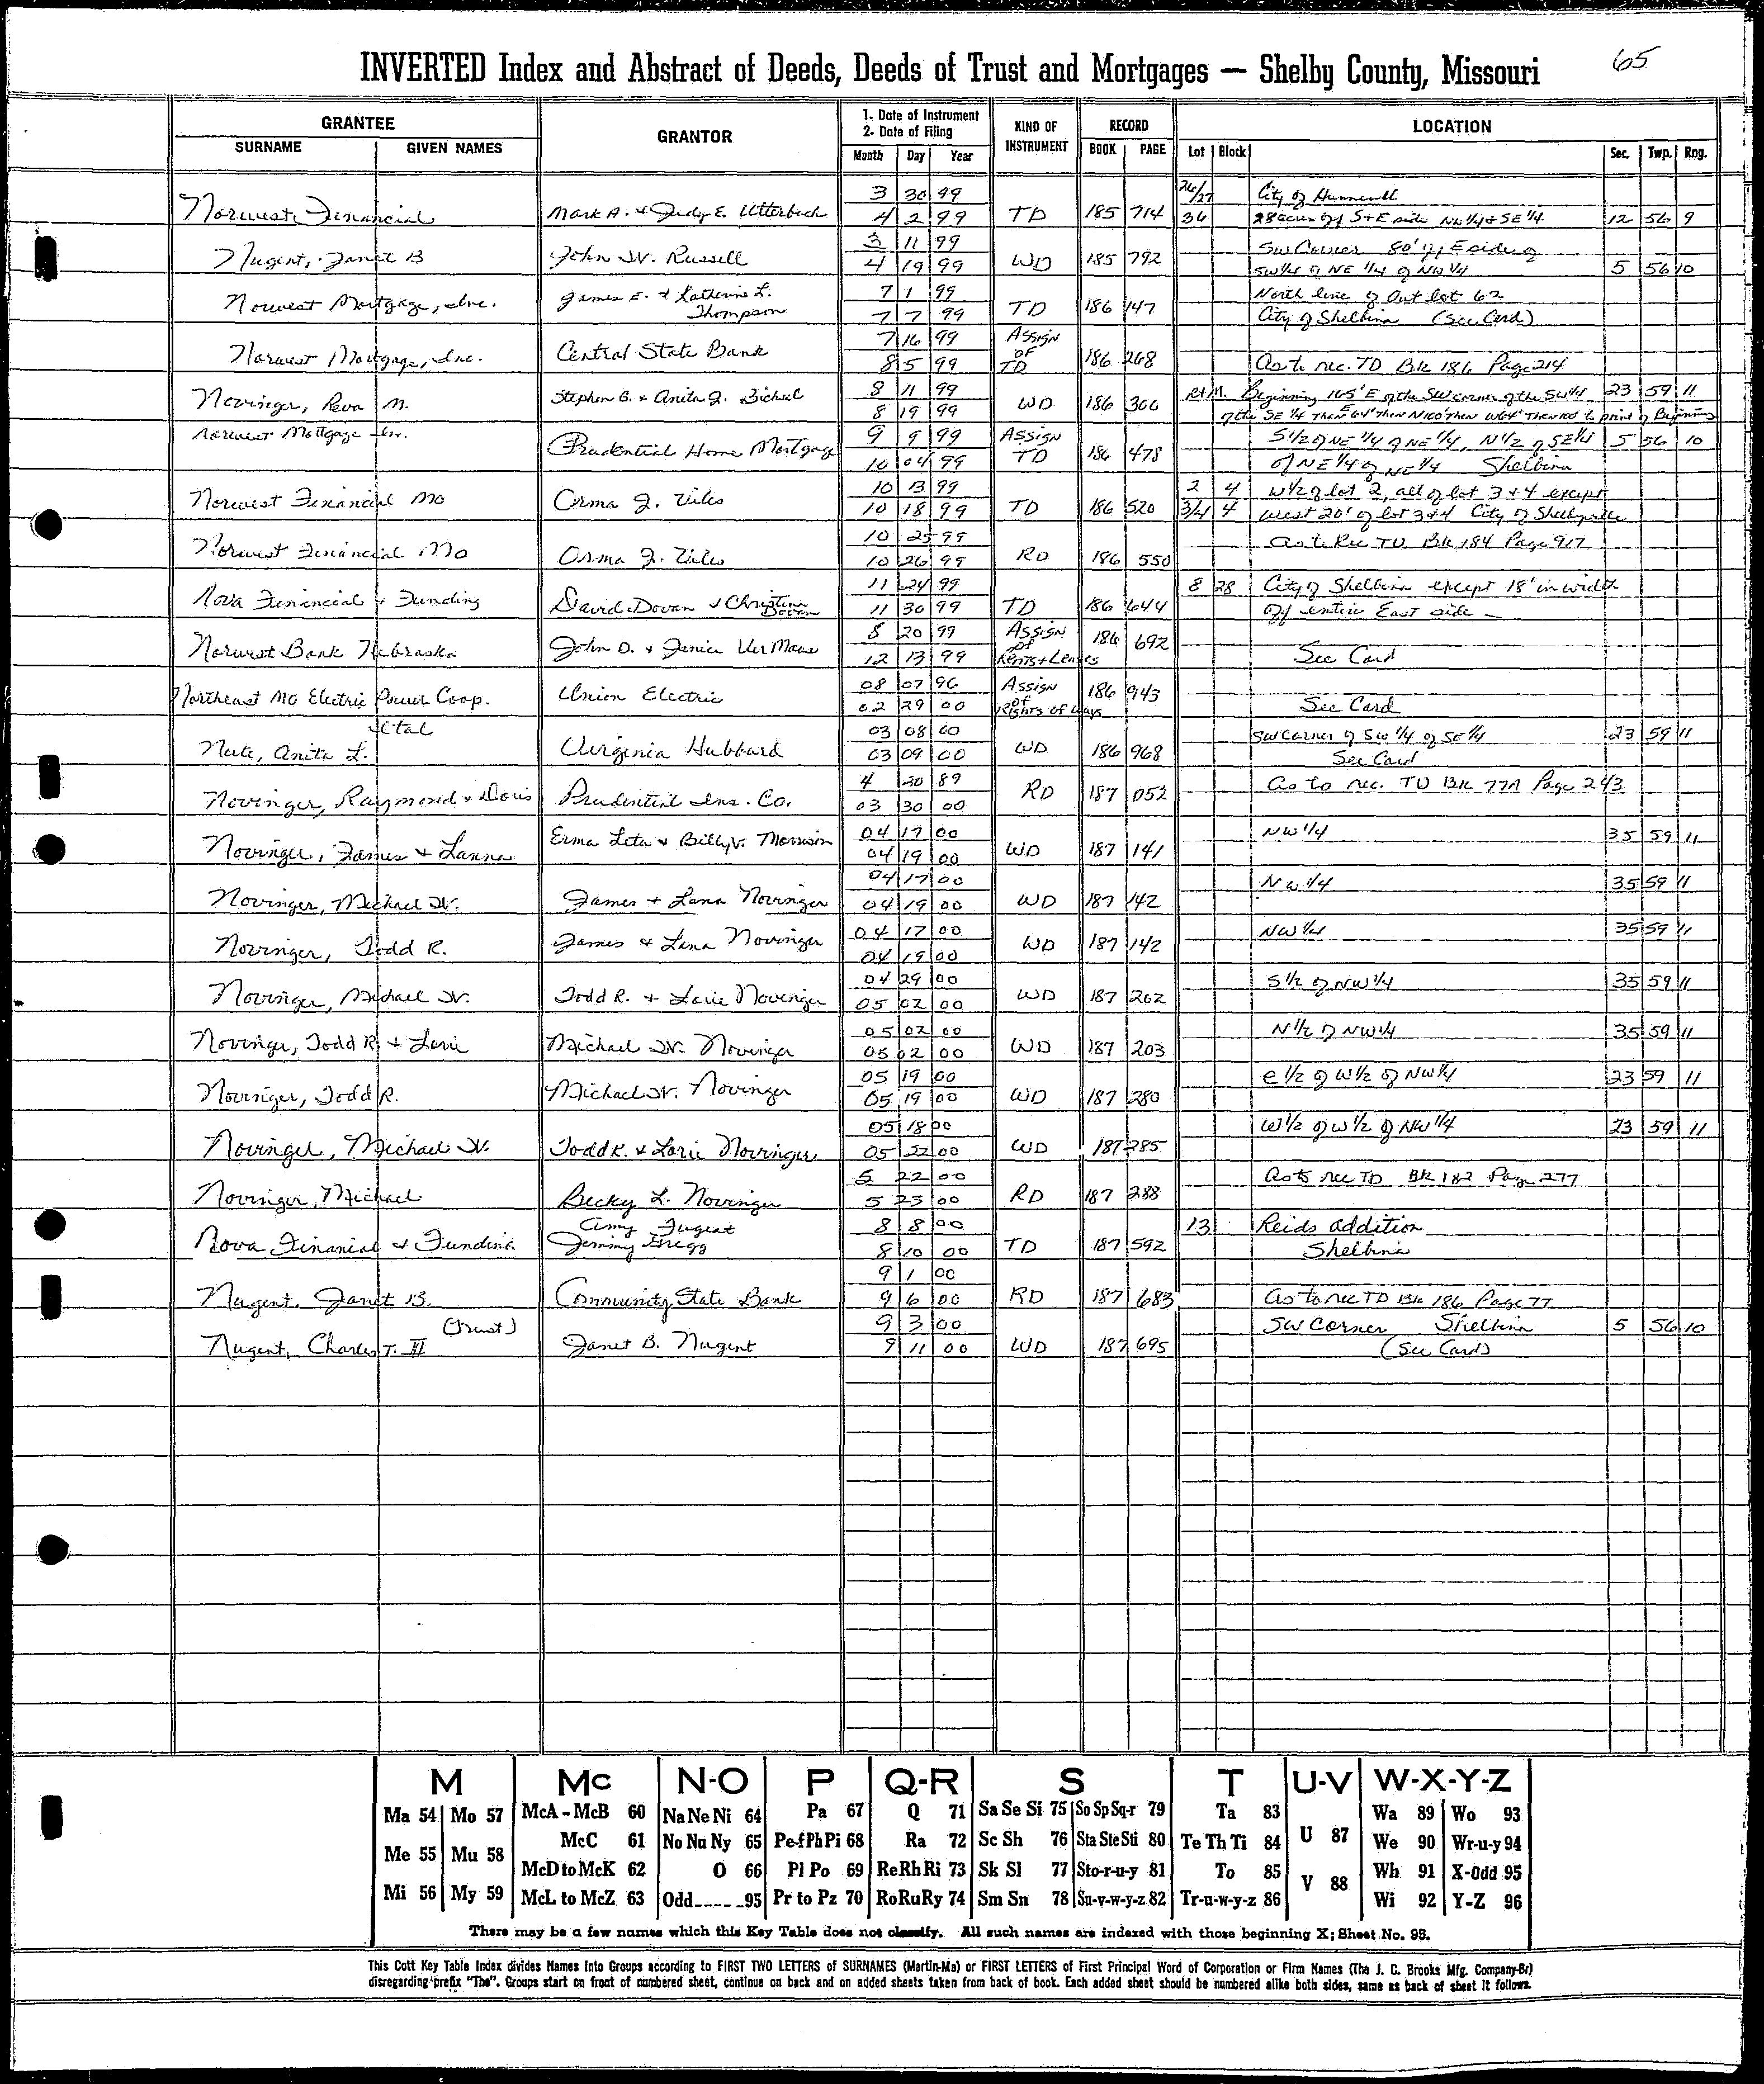 INVERTED Index and Abstract of Deeds, Deeds of Trust and Mortgages — Shelby County, Missouri 65
GRANTEE GRANTOR 1. Date of Instrument 2. Date of Filing KIND OF INSTRUMENT RECORD LOCATION
SURNAME GIVEN NAMES Month Day Year BOOK PAGE Lot Block Sec. Twp. Rng.
3 30 99 26/27 City of Hunnewell
Norwest Financial Mark A. & Judy E. Utterback 4 2 99 TD 185 714 36 28 acres off S+E side NW 1/4 + SE 1/4 12 56 9
3 11 99 SW Corner 80' of E side of
Nugent, Janet B John W. Russell 4 19 99 WD 185 792 SW 1/4 of NE 1/4 of NW 1/4 5 56 10
7 1 99 North line of Out lot 62
Norwest Mortgage, Inc. James E. & Katherine L. Thompson 7 7 99 TD 186 147 City of Shelbina (See Card)
7 16 99 Assign of
Norwest Mortgage, Inc. Central State Bank 8 5 99 TD 186 268 As to rec. TD BK 186 Page 214
8 11 99 Beginning 165' E of the SW corner of the SW 1/4 23 59 11
Novinger, Reva M. Stephen G. & Anita J. Bichsel 8 19 99 WD 186 300 of the SE 1/4 Then E 64' Then N 100' Then W 64' Then 100' to point of Beginning
Norwest Mortgage Inc. 9 9 99 Assign S 1/2 of NE 1/4 of NE 1/4, N 1/2 of SE 1/4 5 56 10
Prudential Home Mortgage 10 04 99 TD 186 478 of NE 1/4 of NE 1/4 Shelbina
10 13 99 2 4 W 1/2 of lot 2, all of lot 3 + 4 except
Norwest Financial MO Orma J. Viles 10 18 99 TD 186 520 3/4 4 West 20' of lot 3+4 City of Shelbyville
10 25 99 As to Rec TD BK 184 Page 917
Norwest Financial MO Orma J. Viles 10 26 99 RD 186 550
11 24 99 8 28 City of Shelbina except 18' in width
Nova Financial & Funding David Dovan & Christina Dovan 11 30 99 TD 186 644 off entire East side
8 20 99 Assign of
Norwest Bank Nebraska John D. & Janice Ver Maas 12 13 99 Rents + Leases 186 692 See Card
08 07 96 Assign of
Northeast MO Electric Power Coop. Union Electric 02 29 00 Rights of Ways 186 943 See Card
et al 03 08 00 SW corner of SW 1/4 of SE 1/4 23 59 11
Nute, Anita L. Virginia Hubbard 03 09 00 WD 186 968 See Card
4 20 89 As to rec. TD BK 77A Page 243
Novinger, Raymond & Doris Prudential Ins. Co. 03 30 00 RD 187 052
04 17 00 NW 1/4 35 59 11
Novinger, James & Lanna Erma Leta & Billy V. Morrison 04 19 00 WD 187 141
04 17 00 NW 1/4 35 59 11
Novinger, Michael W. James + Lana Novinger 04 19 00 WD 187 142
04 17 00 NW 1/4 35 59 11
Novinger, Todd R. James & Lana Novinger 04 19 00 WD 187 142
04 29 00 S 1/2 of NW 1/4 35 59 11
Novinger, Michael W. Todd R. + Lorie Novinger 05 02 00 WD 187 202
05 02 00 N 1/2 of NW 1/4 35 59 11
Novinger, Todd R. + Lorie Michael W. Novinger 05 02 00 WD 187 203
05 19 00 E 1/2 of W 1/2 of NW 1/4 23 59 11
Novinger, Todd R. Michael W. Novinger 05 19 00 WD 187 280
05 18 00 W 1/2 of W 1/2 of NW 1/4 23 59 11
Novinger, Michael W. Todd R. & Lorie Novinger 05 22 00 WD 187 285
5 22 00 As to rec TD BK 182 Page 277
Novinger, Michael Becky L. Novinger 5 23 00 RD 187 288
Amy Fugent 8 8 00 13 Reids addition
Nova Finanial & Funding Jimmy Gregg 8 10 00 TD 187 592 Shelbina
9 1 00
Nugent, Janet B. Community State Bank 9 6 00 RD 187 683 As to rec TD BK 186 Page 77
(Trust) 9 3 00 SW Corner Shelbina 5 56 10
Nugent, Charles T. III Janet B. Nugent 9 11 00 WD 187 695 (See Card)
M Mc N-O P Q-R S T U-V W-X-Y-Z
Ma 54 Mo 57 McA-McB 60 Na Ne Ni 64 Pa 67 Q 71 Sa Se Si 75 So Sp Sq-r 79 Ta 83 U 87 Wa 89 Wo 93
Me 55 Mu 58 McC 61 No Nu Ny 65 Pe-f Ph Pi 68 Ra 72 Sc Sh 76 Sta Ste Sti 80 Te Th Ti 84 We 90 Wr-u-y 94
McD to McK 62 O 66 Pl Po 69 Re Rh Ri 73 Sk Sl 77 Sto-r-u-y 81 To 85 V 88 Wh 91 X-Odd 95
Mi 56 My 59 McL to McZ 63 Odd_____95 Pr to Pz 70 Ro Ru Ry 74 Sm Sn 78 Su-v-w-y-z 82 Tr-u-w-y-z 86 Wi 92 Y-Z 96
There may be a few names which this Key Table does not classify. All such names are indexed with those beginning X; Sheet No. 95.
This Cott Key Table Index divides Names Into Groups according to FIRST TWO LETTERS of SURNAMES (Martin-Ma) or FIRST LETTERS of First Principal Word of Corporation or Firm Names (The J. C. Brooks Mfg. Company-Br)
disregarding prefix "The". Groups start on front of numbered sheet, continue on back and on added sheets taken from back of book. Each added sheet should be numbered alike both sides, same as back of sheet it follows.